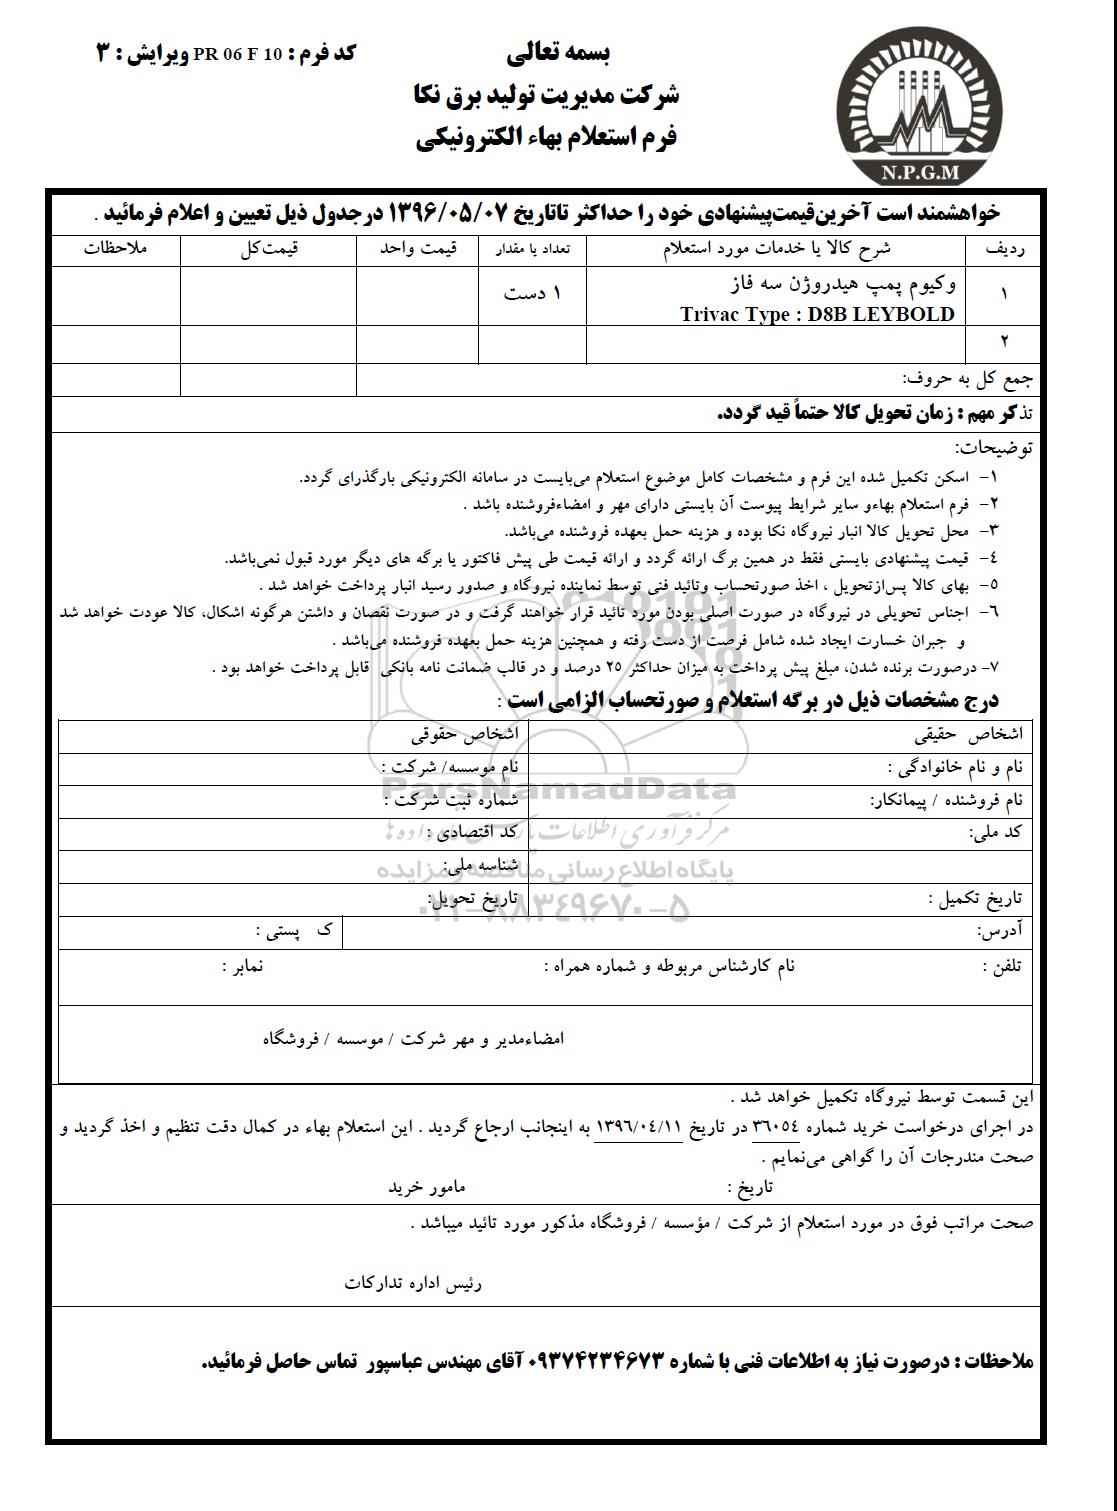 بسمه تعالی
کد فرم : PR 06 F 10 ویرایش : ۳
شرکت مدیریت تولید برق نکا
فرم استعلام بهاء الکترونیکی
N.P.G.M
خواهشمند است آخرین‌قیمت‌پیشنهادی خود را حداکثر تاتاریخ ۱۳۹۶/۰۵/۰۷ درجدول ذیل تعیین و اعلام فرمائید .
ردیف شرح کالا یا خدمات مورد استعلام تعداد یا مقدار قیمت واحد قیمت‌کل ملاحظات
۱ وکیوم پمپ هیدروژن سه فاز ۱ دست
Trivac Type : D8B LEYBOLD
۲
جمع کل به حروف:
تذکر مهم : زمان تحویل کالا حتماً قید گردد.
توضیحات:
۱– اسکن تکمیل شده این فرم و مشخصات کامل موضوع استعلام می‌بایست در سامانه الکترونیکی بارگذرای گردد.
۲– فرم استعلام بهاءو سایر شرایط پیوست آن بایستی دارای مهر و امضاءفروشنده باشد .
۳– محل تحویل کالا انبار نیروگاه نکا بوده و هزینه حمل بعهده فروشنده می‌باشد.
۴– قیمت پیشنهادی بایستی فقط در همین برگ ارائه گردد و ارائه قیمت طی پیش فاکتور یا برگه های دیگر مورد قبول نمی‌باشد.
۵– بهای کالا پس‌ازتحویل ، اخذ صورتحساب وتائید فنی توسط نماینده نیروگاه و صدور رسید انبار پرداخت خواهد شد .
۶– اجناس تحویلی در نیروگاه در صورت اصلی بودن مورد تائید قرار خواهند گرفت و در صورت نقصان و داشتن هرگونه اشکال، کالا عودت خواهد شد
و جبران خسارت ایجاد شده شامل فرصت از دست رفته و همچنین هزینه حمل بعهده فروشنده می‌باشد .
۷– درصورت برنده شدن، مبلغ پیش پرداخت به میزان حداکثر ۲۵ درصد و در قالب ضمانت نامه بانکی قابل پرداخت خواهد بود .
درج مشخصات ذیل در برگه استعلام و صورتحساب الزامی است :
اشخاص حقیقی اشخاص حقوقی
نام و نام خانوادگی : نام موسسه/ شرکت :
ParsNamadData
نام فروشنده / پیمانکار: شماره ثبت شرکت :
کد ملی: کد اقتصادی :
شناسه ملی:
پایگاه اطلاع رسانی مناقصه و مزایده
تاریخ تکمیل : تاریخ تحویل:
۰۲۱–۸۸۳۴۹۶۷۰–۵
آدرس: ک پستی :
تلفن : نام کارشناس مربوطه و شماره همراه : نمابر :
امضاءمدیر و مهر شرکت / موسسه / فروشگاه
این قسمت توسط نیروگاه تکمیل خواهد شد .
در اجرای درخواست خرید شماره ۳۶۰۵۴ در تاریخ ۱۳۹۶/۰۴/۱۱ به اینجانب ارجاع گردید . این استعلام بهاء در کمال دقت تنظیم و اخذ گردید و
صحت مندرجات آن را گواهی می‌نمایم .
تاریخ : مامور خرید
صحت مراتب فوق در مورد استعلام از شرکت / مؤسسه / فروشگاه مذکور مورد تائید میباشد .
رئیس اداره تدارکات
ملاحظات : درصورت نیاز به اطلاعات فنی با شماره ۰۹۳۷۴۲۳۴۶۷۳ آقای مهندس عباسپور تماس حاصل فرمائید.